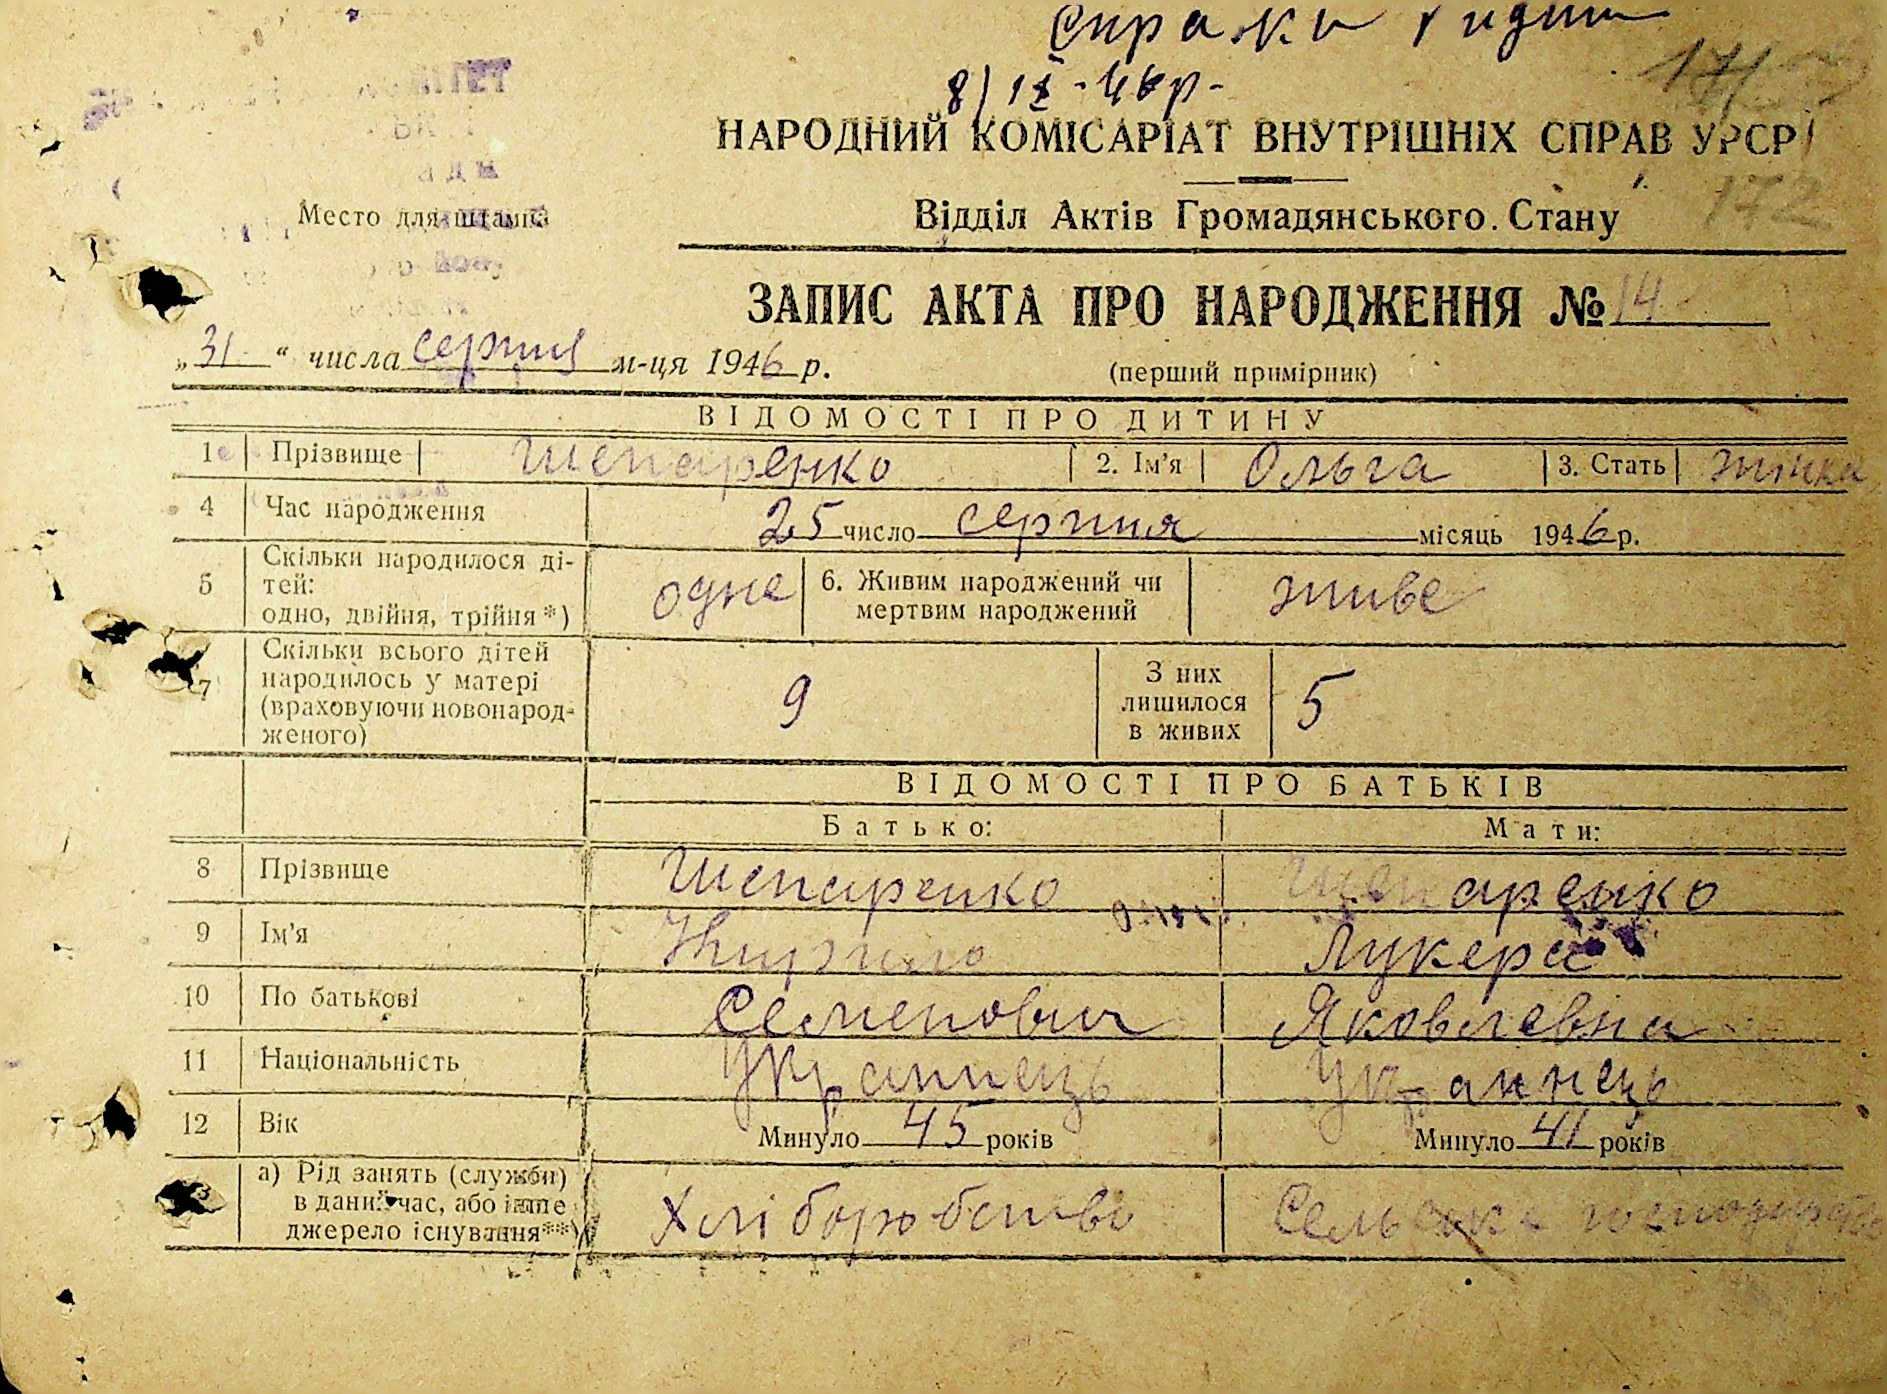 8/IX-46р-
НАРОДНИЙ КОМІСАРІАТ ВНУТРІШНІХ СПРАВ УРСР
171
172
Место для штампа
Відділ Актів Громадянського Стану
ЗАПИС АКТА ПРО НАРОДЖЕННЯ № 14
„31“ числа серпня м-ця 1946 р.
(перший примірник)
ВІДОМОСТІ ПРО ДИТИНУ
1 Прізвище Шепаренко 2. Ім'я Ольга 3. Стать жінка
4 Час народження 25 число серпня місяць 1946 р.
5 Скільки народилося ді-
тей:
одно, двійня, трійня*) одне 6. Живим народжений чи
мертвим народжений живе
7 Скільки всього дітей
народилось у матері
(враховуючи новонарод-
женого) 9 З них
лишилося
в живих 5
ВІДОМОСТІ ПРО БАТЬКІВ
Батько: Мати:
8 Прізвище Шепаренко Шепаренко
9 Ім'я Кирило Лукера
10 По батькові Семенович Яковлевна
11 Національність Українець Українець
12 Вік Минуло 45 років Минуло 41 років
13 а) Рід занять (служби)
в даний час, або інше
джерело існування**) Хліборобство Сельське господарство